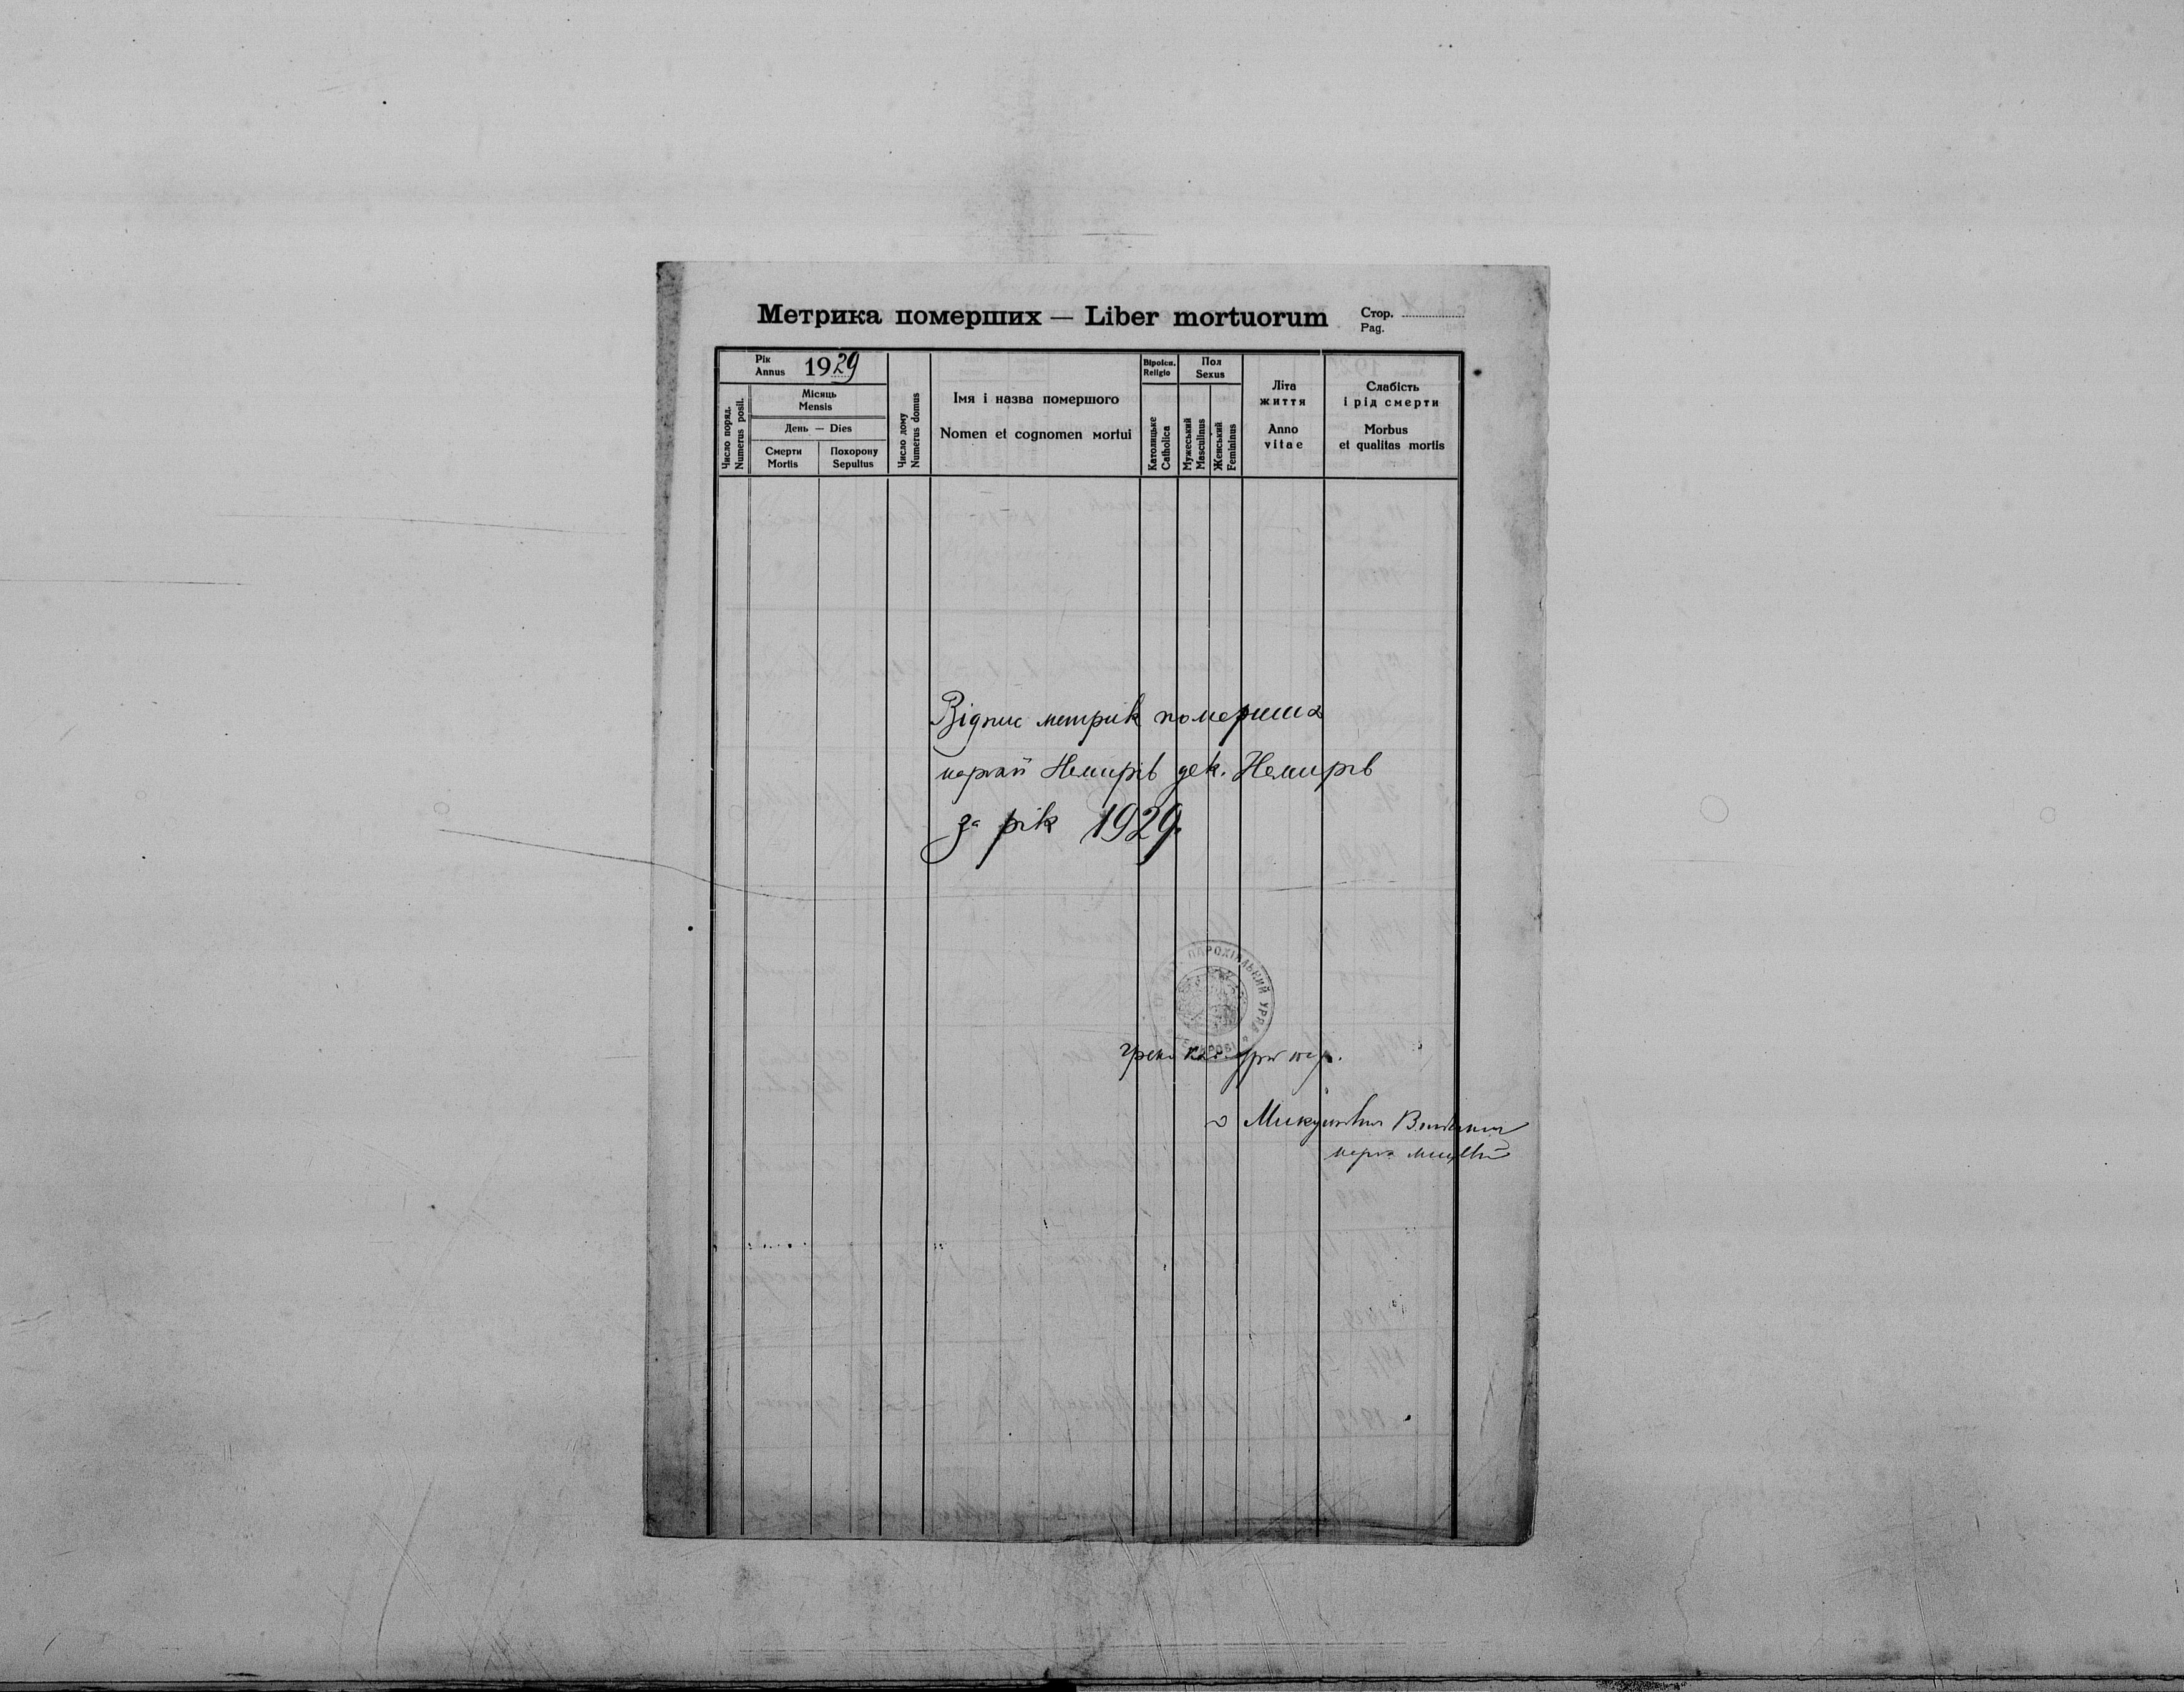 Метрика померших — Liber mortuorum
Стор.
Pag.
Рік
Annus 1929
Число поряд.
Numerus posit.
Місяць
Mensis
День — Dies
Смерти
Mortis
Похорону
Sepultus
Число дому
Numerus domus
Імя і назва помершого
Nomen et cognomen mortui
Віроісп.
Religio
Католицьке
Catholica
Пол
Sexus
Мужеський
Masculinus
Женський
Femininus
Літа
життя
Anno
vitae
Слабість
і рід смерти
Morbus
et qualitas mortis
Відпис метрик померших
парохії Немирів дек. Немирів
за рік 1929.
ПАРОХІЯЛЬНИЙ УРЯД